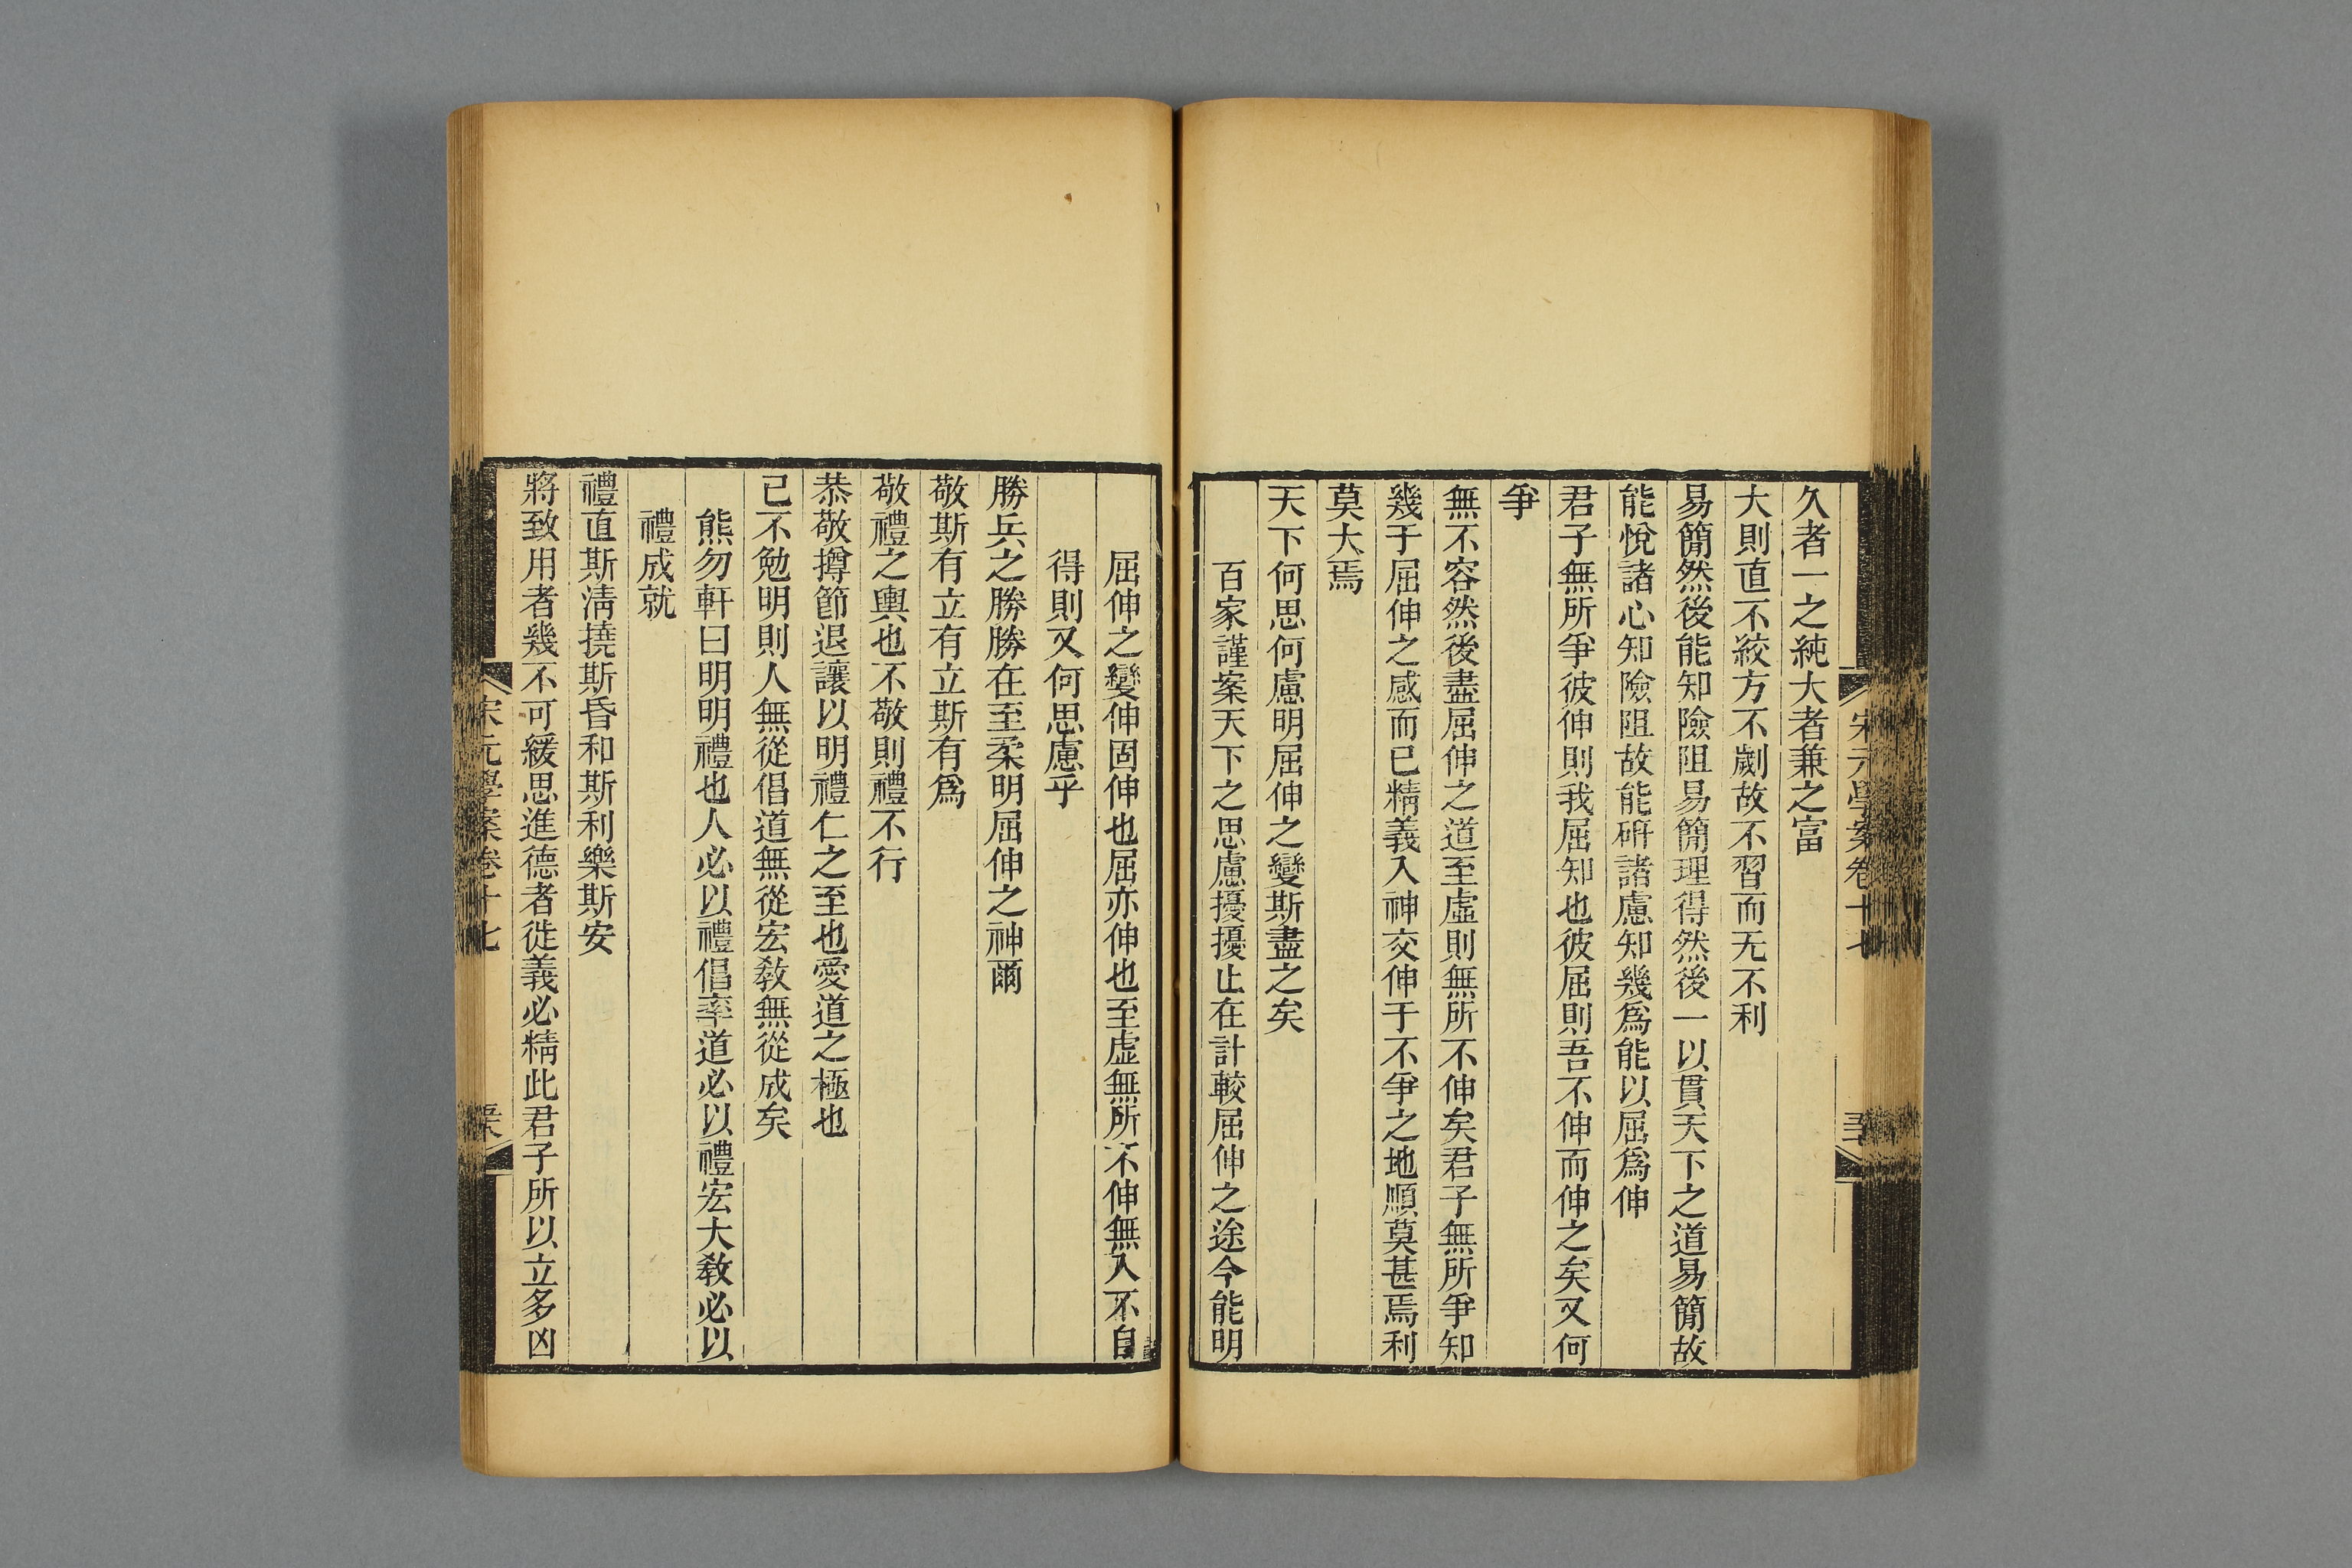 久者一之純大者兼之富
大則直不絞方不劌故不習而无不利
易簡然後能知險阻易簡理得然後一以貫天下之道易簡故
能悅諸心知險阻故能硏諸慮知幾爲能以屈爲伸
君子無所爭彼伸則我屈知也彼屈則吾不伸而伸之矣又何
爭
無不容然後盡屈伸之道至虛則無所不伸矣君子無所爭知
幾于屈伸之感而已精義入神交伸于不爭之地順莫甚焉利
莫大焉
天下何思何慮明屈伸之變斯盡之矣
百家謹案天下之思慮擾擾止在計較屈伸之途今能明
屈伸之變伸固伸也屈亦伸也至虛無所不伸無入不自
得則又何思慮乎
勝兵之勝勝在至柔明屈伸之神爾
敬斯有立有立斯有爲
敬禮之輿也不敬則禮不行
恭敬撙節退讓以明禮仁之至也愛道之極也
己不勉明則人無從倡道無從宏敎無從成矣
熊勿軒曰明明禮也人必以禮倡率道必以禮宏大敎必以
禮成就
禮直斯淸撓斯昏和斯利樂斯安
將致用者幾不可緩思進德者徙義必精此君子所以立多凶
宋元學案卷十七